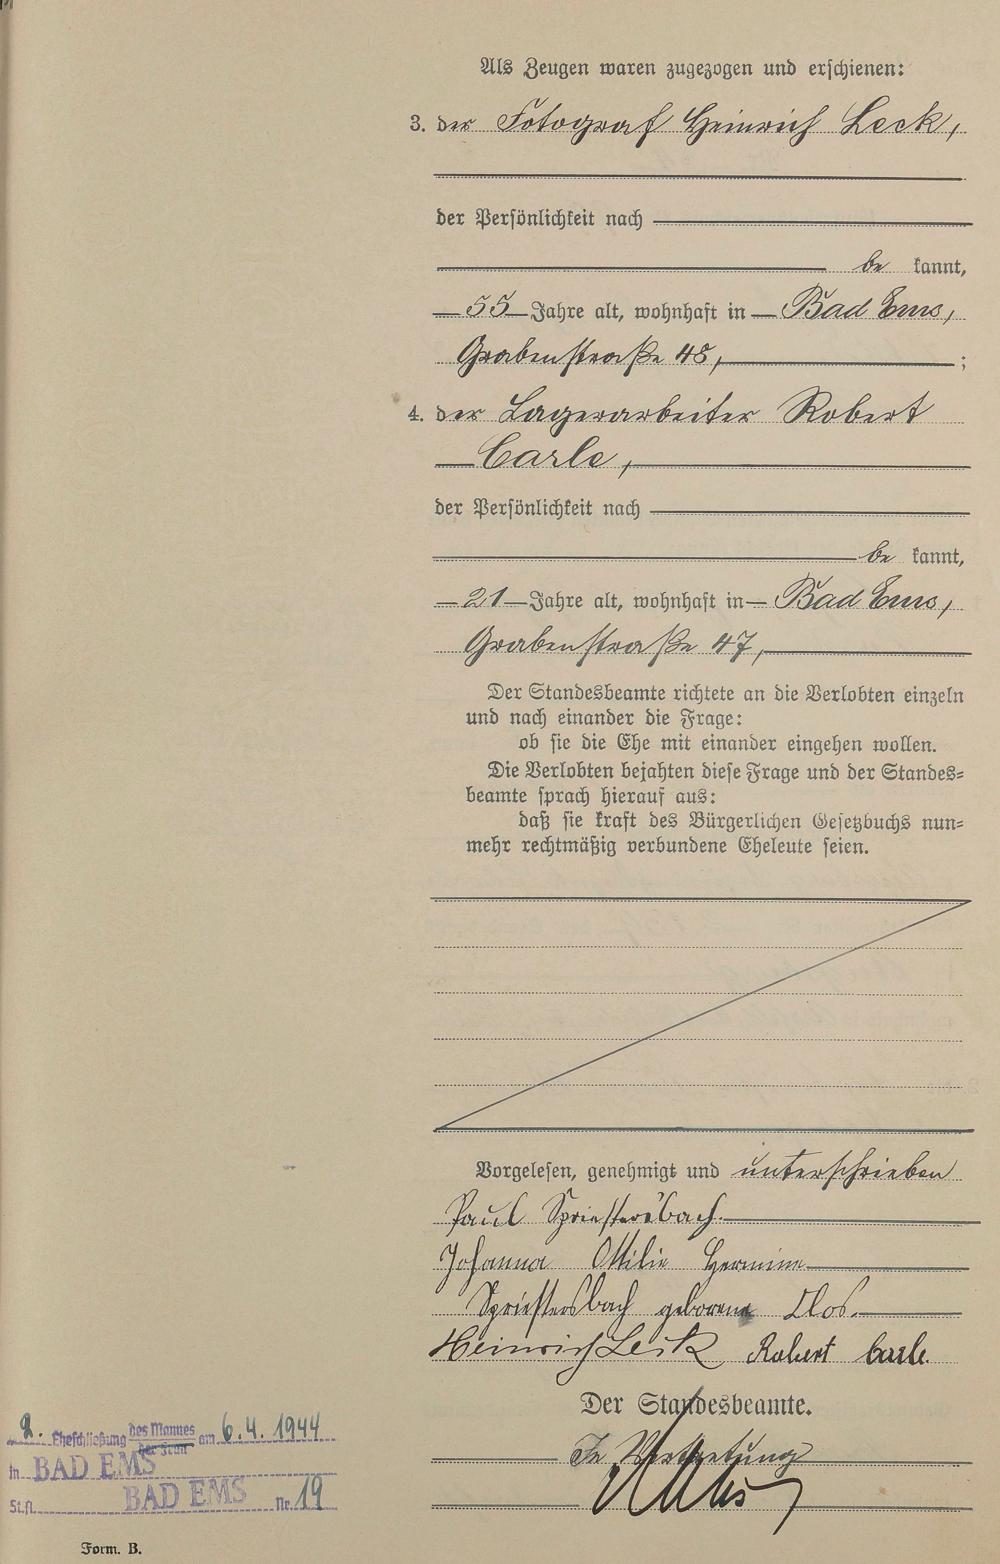 Als Zeugen waren zugezogen und erschienen:
3. der Fotograf Heinrich Leck,
der Persönlichkeit nach
be kannt,
55 Jahre alt, wohnhaft in Bad Ems,
Grabenstraße 48, ;
4. der Lagerarbeiter Robert
Carle,
der Persönlichkeit nach
be kannt,
21 Jahre alt, wohnhaft in Bad Ems,
Grabenstraße 47,
Der Standesbeamte richtete an die Verlobten einzeln
und nach einander die Frage:
ob sie die Ehe mit einander eingehen wollen.
Die Verlobten bejahten diese Frage und der Standes=
beamte sprach hierauf aus:
daß sie kraft des Bürgerlichen Gesetzbuchs nun=
mehr rechtmäßig verbundene Eheleute seien.
Vorgelesen, genehmigt und unterschrieben
Paul Spriestersbach.
Johanna Ottilie Hermine
Spriestersbach geborene Clos.
Heinrich Leck Robert Carle.
Der Standesbeamte.
In Vertretung
2. Eheschließung des Mannes am 6.4.1944
der Frau
in BAD EMS
St.A. BAD EMS Nr. 19
Form. B.